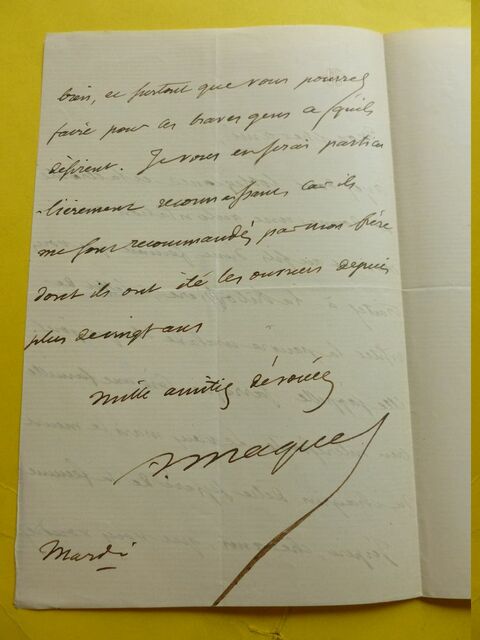 bien, et surtout que vous pourrez
faire pour ces braves gens ce qu'ils
désirent. Je vous en serai particu
-lièrement reconnaissant car ils
me sont recommandés par mon frère
dont ils ont été les ouvriers depuis
plus de vingt ans
mille amitiés dévouées
A. Maquet
Mardi